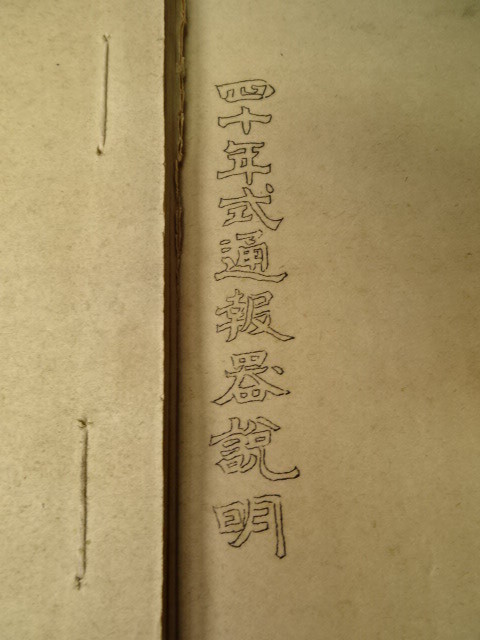 四十年式通報器説明